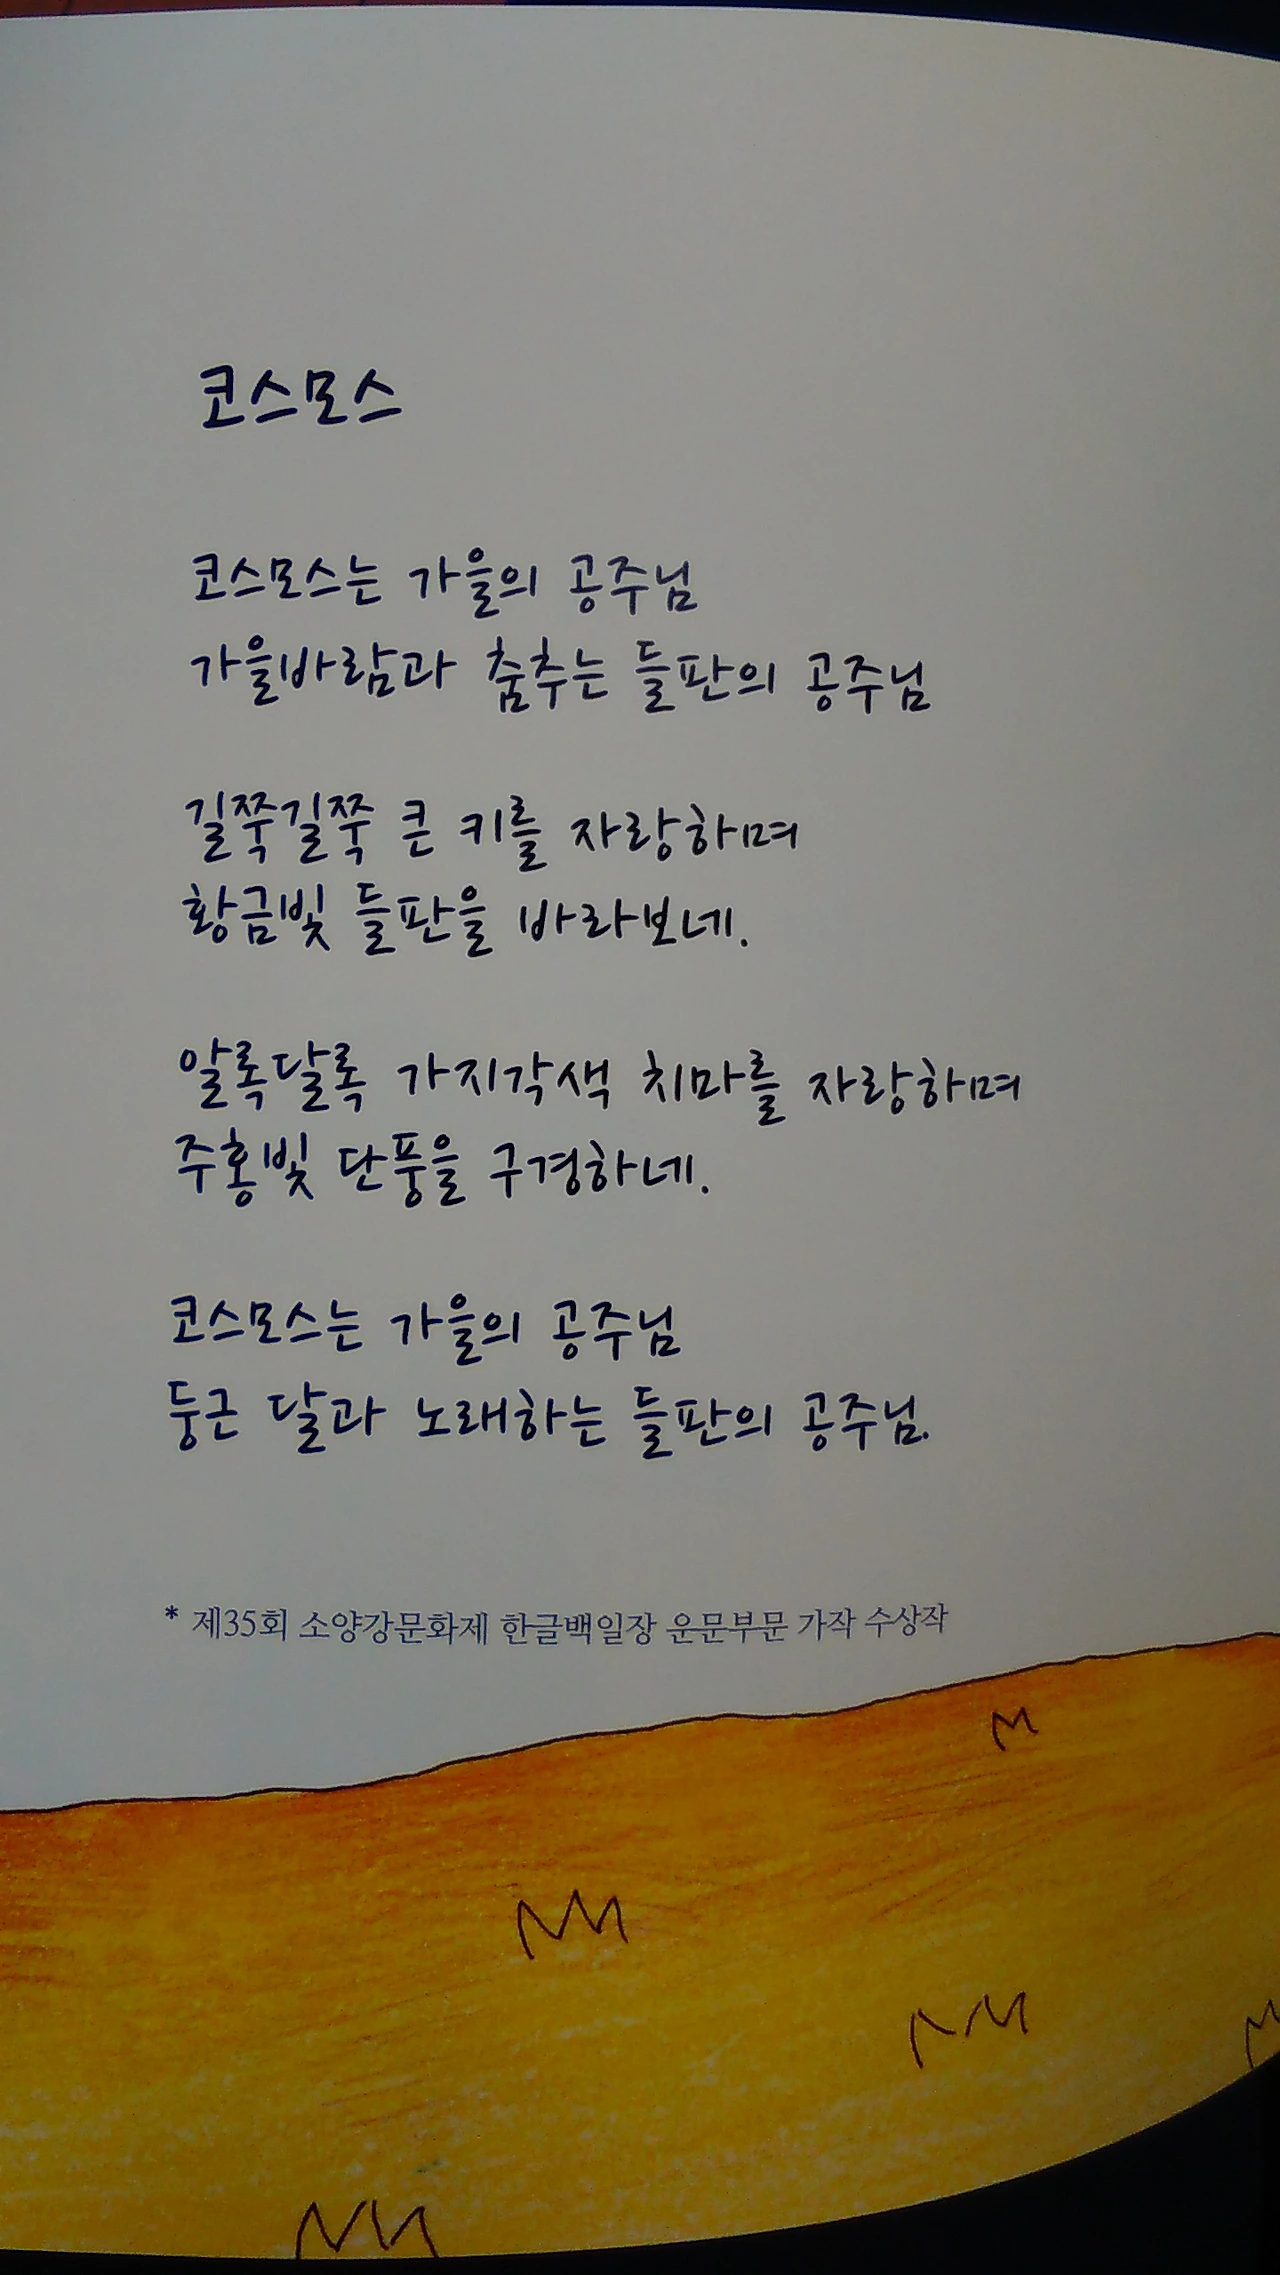 코스모스
코스모스는 가을의 공주님
가을바람과 춤추는 들판의 공주님
길쭉길쭉 큰 키를 자랑하며
황금빛 들판을 바라보네.
알록달록 가지각색 치마를 자랑하며
주홍빛 단풍을 구경하네.
코스모스는 가을의 공주님
둥근 달과 노래하는 들판의 공주님.
* 제35회 소양강문화제 한글백일장 운문부문 가작 수상작